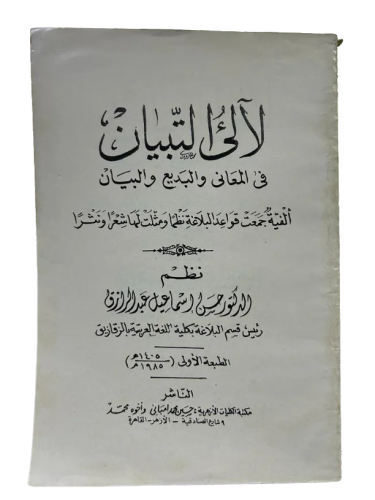 لآلئ التبيان
فى المعانى والبديع والبيان
ألفية جمعت قواعد البلاغة نظما ومثلت لها شعرًا ونثرًا
نظم
الدكتور حسن إسماعيل عبد الرازق
رئيس قسم البلاغة بكلية اللغة العربية بالزقازيق
الطبعة الأولى (١٤٠٥هـ / ١٩٨٥م)
الناشر
مكتبة الكليات الأزهرية: حسين محمد امبابى وأخوه محمد
٩ شارع الصنادقية - الأزهر - القاهرة